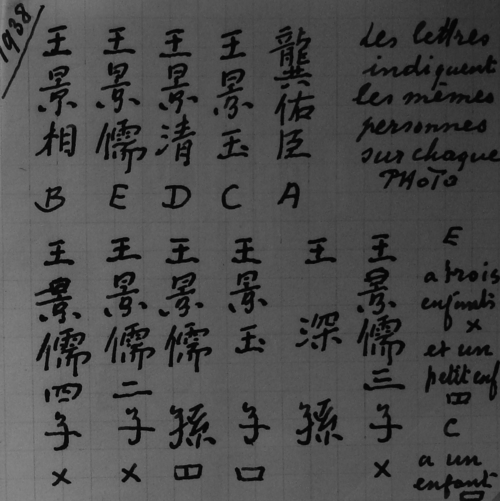 1938
Les lettres
indiquent
les mêmes
personnes
sur chaque
PHOTO
龔佑臣 A
王景玉 C
王景清 D
王景儒 E
王景相 B
E
a trois
enfants
x
et un
petit enf
四
C
a un
enfant
口
王景儒三子 x
王深孫
王景玉子 口
王景儒孫 四
王景儒二子 x
王景儒四子 x